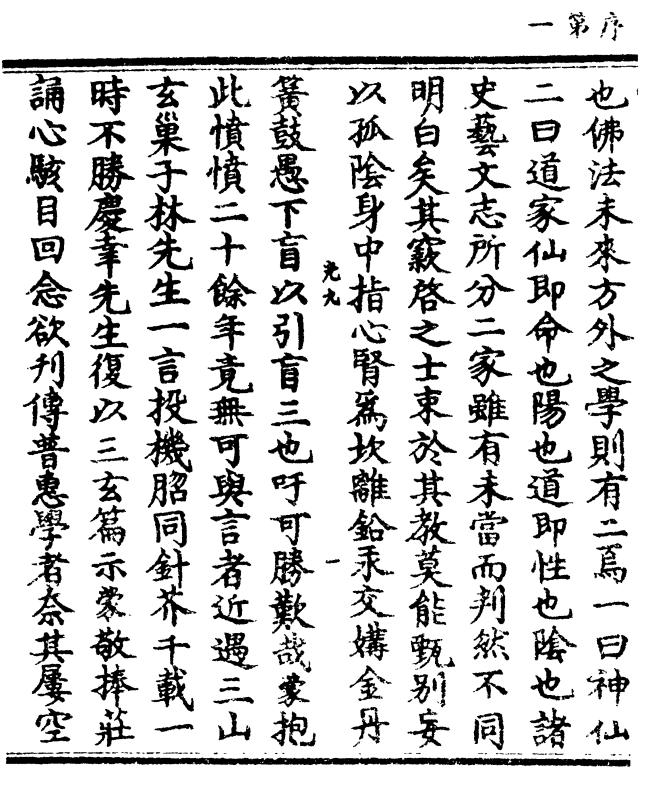 序第一
也佛法未來方外之學則有二焉一曰神仙
二曰道家仙即命也陽也道即性也陰也諸
史藝文志所分二家雖有未當而判然不同
明白矣其竅啓之士束於其教莫能甄别妄
以孤陰身中指心腎爲坎離鉛汞交媾金丹
光九
一
簧鼓愚下盲以引盲三也吁可勝歎哉蒙抱
此憤憤二十餘年竟無可與言者近遇三山
玄巢子林先生一言投機䏚同針芥千載一
時不勝慶幸先生復以三玄篇示蒙敬捧莊
誦心駭目回念欲刋傳普惠學者奈其屢空